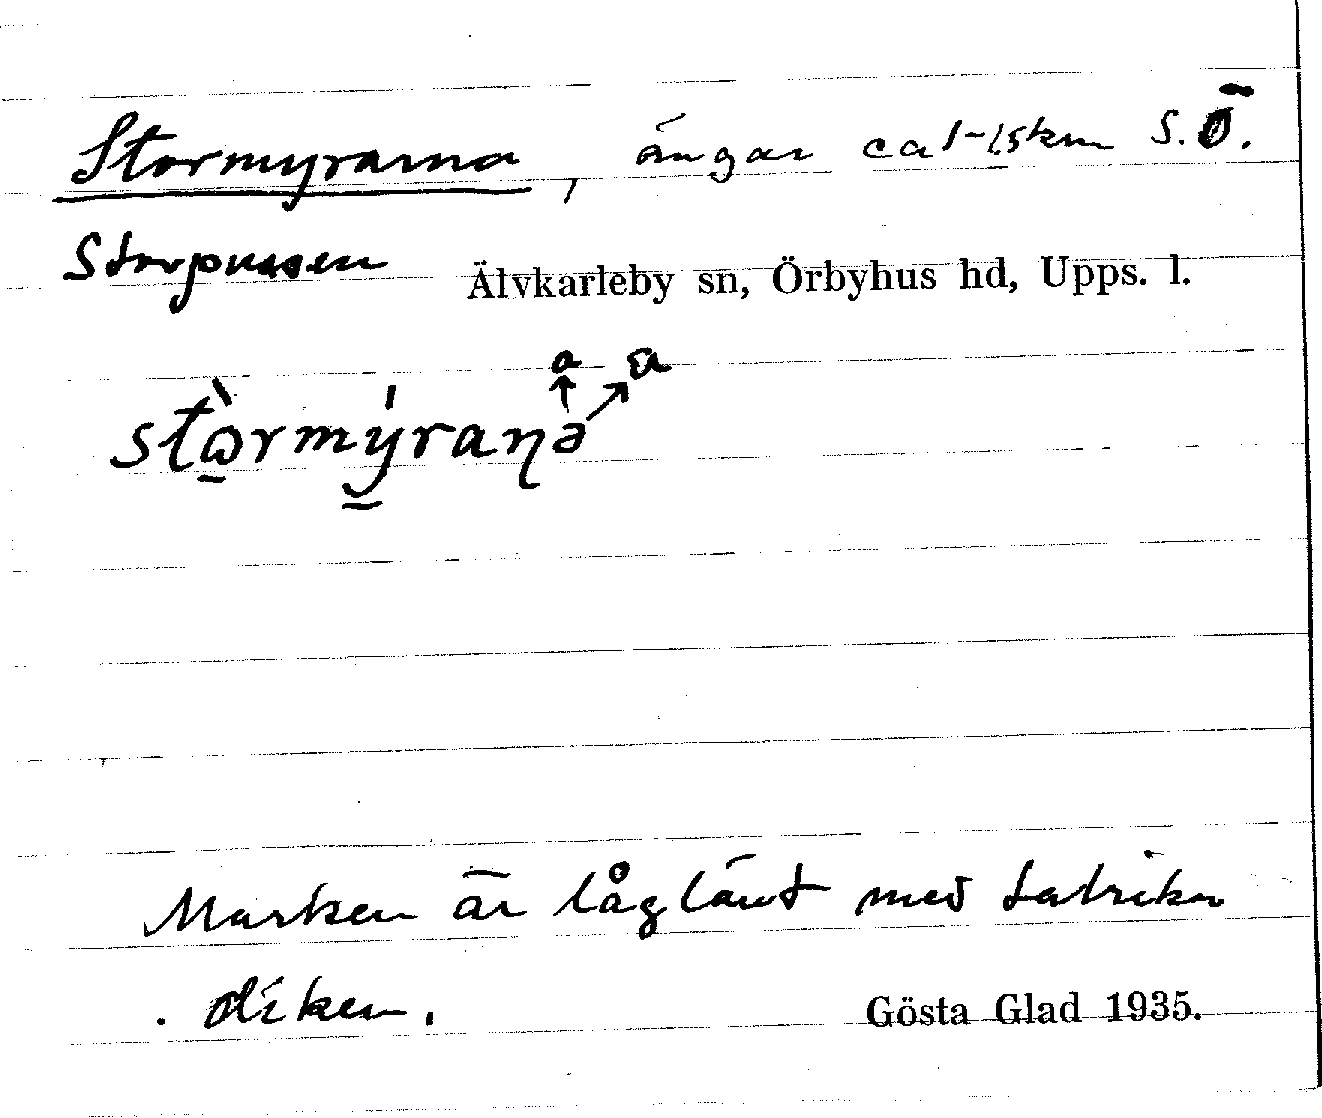 Stormyrarna, ängar ca 1-1,5km S.Ö.
Storpussen Älvkarleby sn, Örbyhus hd, Upps. l.
a a
stòrmýraṇə
Marken är låglänt med talrika
diken.
Gösta Glad 1935.